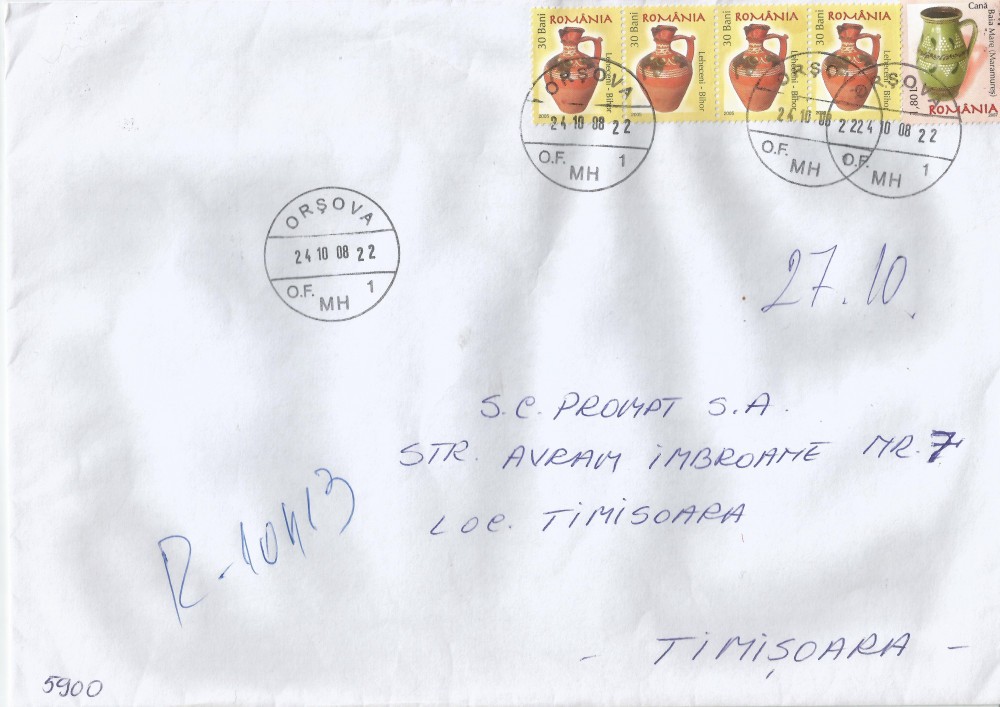 30 Bani ROMÂNIA Leheceni - Bihor 2005
30 Bani ROMÂNIA Leheceni - Bihor 2005
30 Bani ROMÂNIA Leheceni - Bihor 2005
30 Bani ROMÂNIA Leheceni - Bihor 2005
Cană
Baia Mare (Maramureş)
ROMÂNIA
ORŞOVA
24 10 08 22
O.F. MH 1
ORŞOVA
24 10 08 22
O.F. MH
ORŞOVA
24 10 08 22
O.F. MH 1
ORŞOVA
24 10 08 22
O.F. MH 1
27.10.
S.C. PROMPT S.A.
STR. AVRAM IMBROANE NR. 7
LOC. TIMISOARA
R-10413
- TIMIŞOARA -
5900